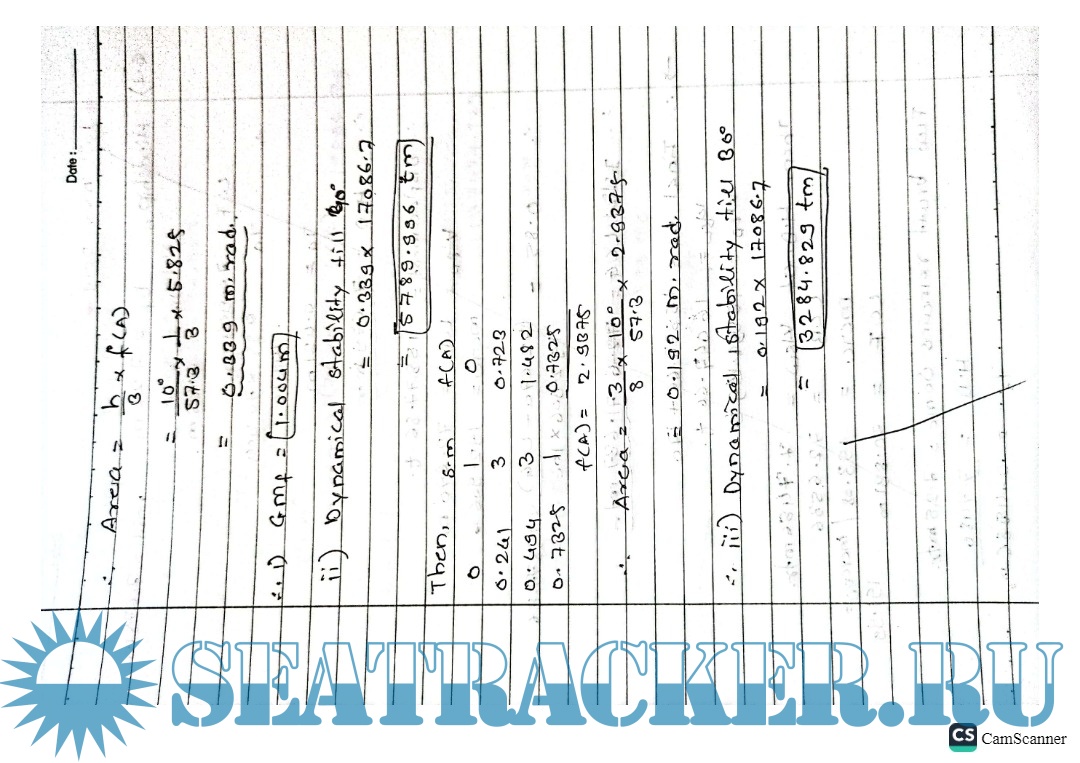 Date :
∴ Area = h/3 × f(A)
= 10°/57.3 × 1/3 × 5.825
= 0.339 m. rad.
∴ 1) GMf = 1.004m
ii) Dynamical stability till 40°
= 0.339 × 17086.7
= 5789.996 tm
Then, S.M f(A)
0 1 0
0.241 3 0.723
0.494 3 1.482
0.7325 1 0.7325
f(A) = 2.9375
∴ Area = 3/8 × 10°/57.3 × 2.9375
= 0.192 m. rad.
∴ iii) Dynamical stability till 30°
= 0.192 × 17086.7
= 3284.829 tm
SEATRACKER.RU
CS CamScanner